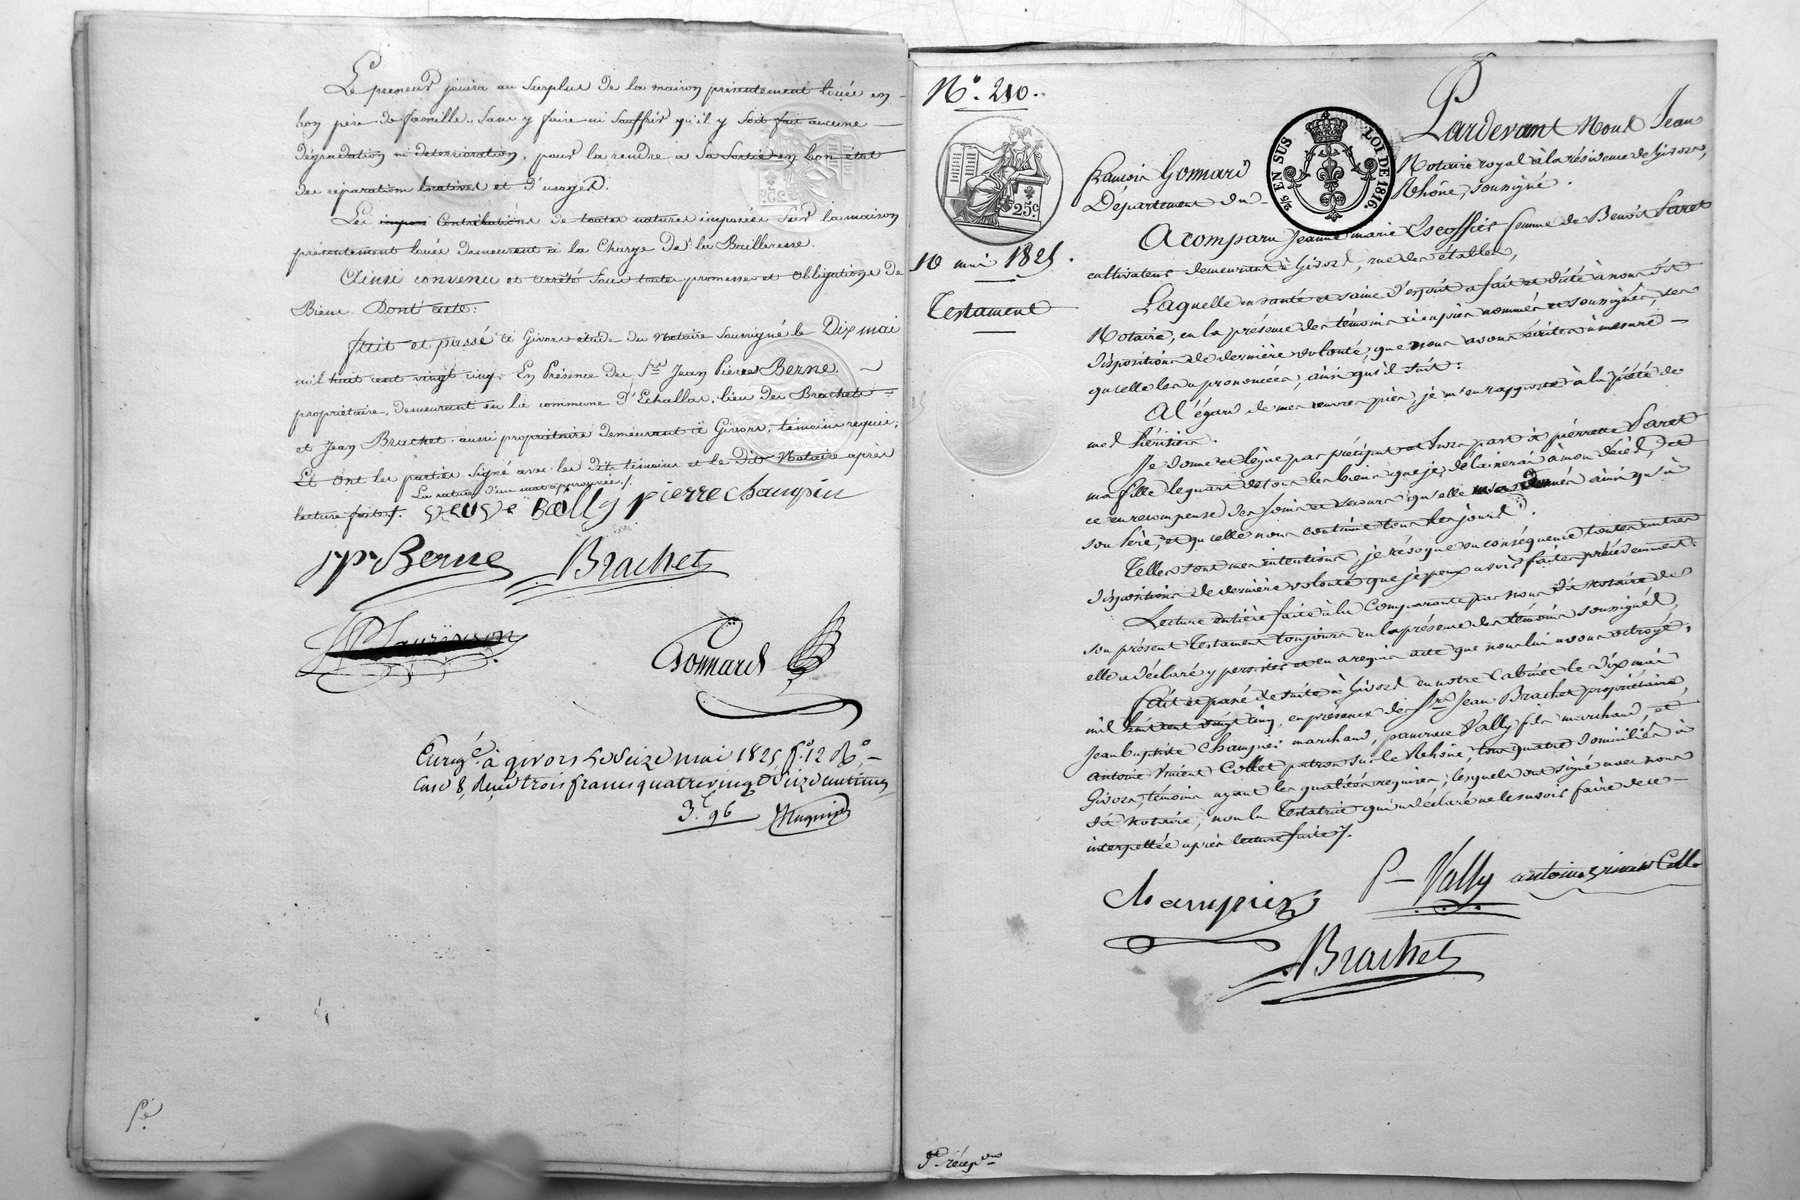 Le preneur jouira au surplus de la maison présentement louée en
bon père de famille, sans y faire ni souffrir qu'il y soit fait aucune
dégradation ni déterrioration, pour la rendre a sa sortie en bon état
de réparations locatives et d'usage.
Les impots Contributions de toutes natures imposées sur la maison
présentement louée demeurent à la Charge de la Bailleresse.
Ainsi convenu et arrêté sous toutes promesses et obligations de
Biens. Dont acte:
fait et passé à Givors étude du Notaire soussigné le Dix mai
mil huit cent vingt cinq. En Présence de Srs Jean Pierre Berne
propriétaire, demeurant en la commune d'Echallas, lieu des Brachets
et Jean Brachet aussi propriétaire demeurant à Givors, témoins requis;
Et ont les parties signé avec les dits témoins et le dit Notaire après
La rature d'un mot approuvée ./.
lecture faite ./. veuve Bally pierre champin
JPre Berne Brachet
Gonnard
Enregé à givors le Seize mai 1825 fo 12 Ro,
Case 8, Reçu trois francs quatre vingt Seize centimes
3f. 96
No. 210.
25c
10 mai 1825.
Testament
2/5 EN SUS
LOI DE 1816.
Pardevant Nous Jean
François Gonnard Notaire royal à la résidence de Givors,
Département du Rhône, soussigné.
A comparu Jeanne marie Escoffier femme de Benoît Faret
cultivateur demeurant à Givors, rue des étables,
Laquelle en santé et saine d'esprit a fait et dicté à nous dit
Notaire, en la présence des témoins ci après nommés et soussignés, ses
dispositions de dernière volonté, que nous avons écrites à mesure
qu'elle les a prononcées, ainsi qu'il suit:
A l'égard de mes œuvres pies, je m'en rapporte à la piété de
mes héritiers.
Je donne et lègue par préciput et hors part à pierrette Faret
ma fille le quart de tous les biens que je delaisserai à mon décès, et
ce en recompense des soins et secours qu'elle m'a donnés ainsi qu'à
son Père, et qu'elle nous continue tous les jours.
Telles sont mes intentions, je révoque en conséquence toutes autres
dispositions de dernière volonté que je peux avoir faites précédemment.
Lecture entière faite à la Comparante par nous dit Notaire de
son présent Testament toujours en la présence des témoins soussignés,
elle a déclaré y persister et en a requis acte que nous lui avons octroyé.
Fait et passé de suite à Givors en notre Cabinet le dix mai
mil huit cent vingt cinq, en présence de Srs Jean Brachet propriétaire,
Jean baptiste Champier marchand, pancrace Vally fils marchand, et
Antoine Vincent Collet patron sur le Rhône, tous quatre domiciliés à
Givors, témoins ayant les qualités requises, lesquels ont signé avec nous
dit Notaire, non la Testatrice qui a déclaré ne le savoir faire de ce
interpellée après lecture faite ./.
Champier P Vally antoine vincent Collet
Brachet